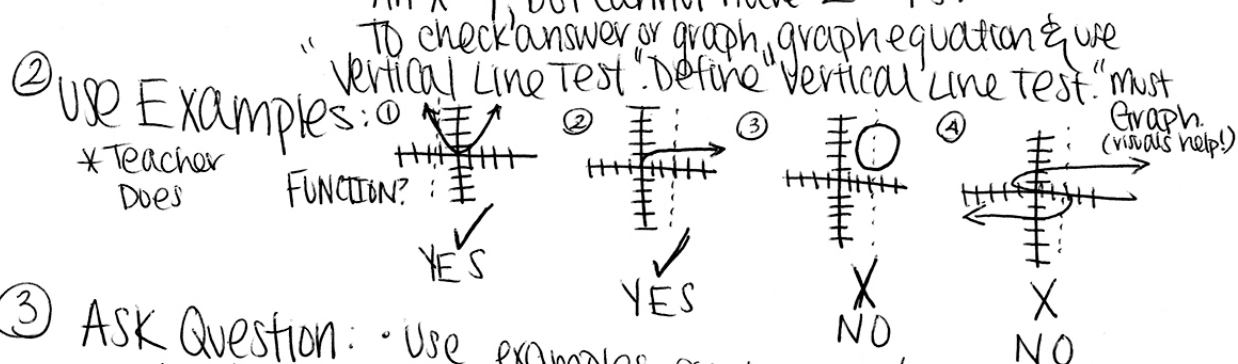 To check answer or graph, graph equation & use
"Vertical Line Test". Define "Vertical Line Test." Must
Graph.
(visuals help!)
② Use Examples: ① ② ③ ④
* Teacher
Does
FUNCTION?
YES YES NO NO
③ Ask Question: • Use examples